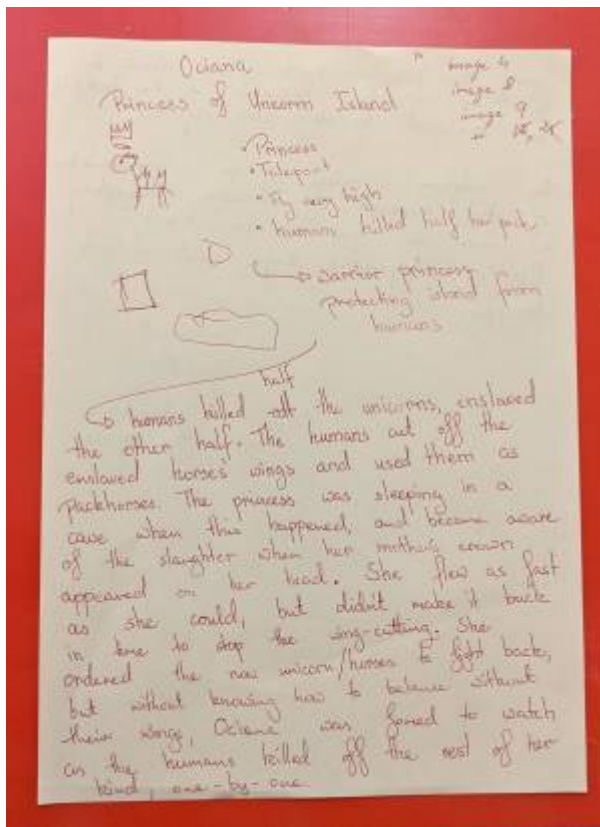 Ociana
Princess of Unicorn Island
image 4
image 8
image 9
• Princess
• Teleport
• Fly very high
• humans killed half her pack
warrior princess
protecting island from
humans
half
humans killed the unicorns, enslaved
the other half. The humans cut off the
enslaved horses wings and used them as
packhorses. The princess was sleeping in a
cave when this happened, and became aware
of the slaughter when her mother's crown
appeared on her head. She flew as fast
as she could, but didn't make it back
in time to stop the wing-cutting. She
ordered the now unicorn/horses to fight back,
but without knowing how to balance without
their wings, Ociana was forced to watch
as the humans killed off the rest of her
kind, one-by-one.